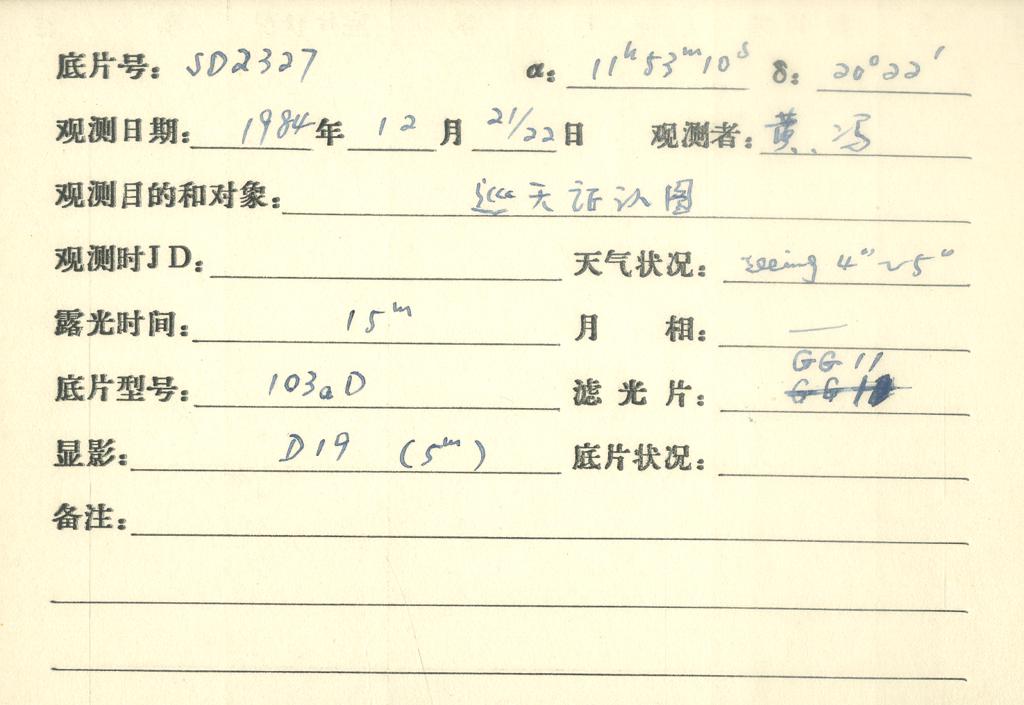 底片号: SD2327 α: 11ʰ53ᵐ10ˢ δ: 20°22′
观测日期: 1984年 12月 21/22日 观测者: 黄、冯
观测目的和对象: 巡天证认图
观测时JD: 天气状况: seeing 4″~5″
露光时间: 15ᵐ 月 相: —
GG 11
底片型号: 103aD 滤光片: GG
显影: D19 (5ᵐ) 底片状况:
备注: